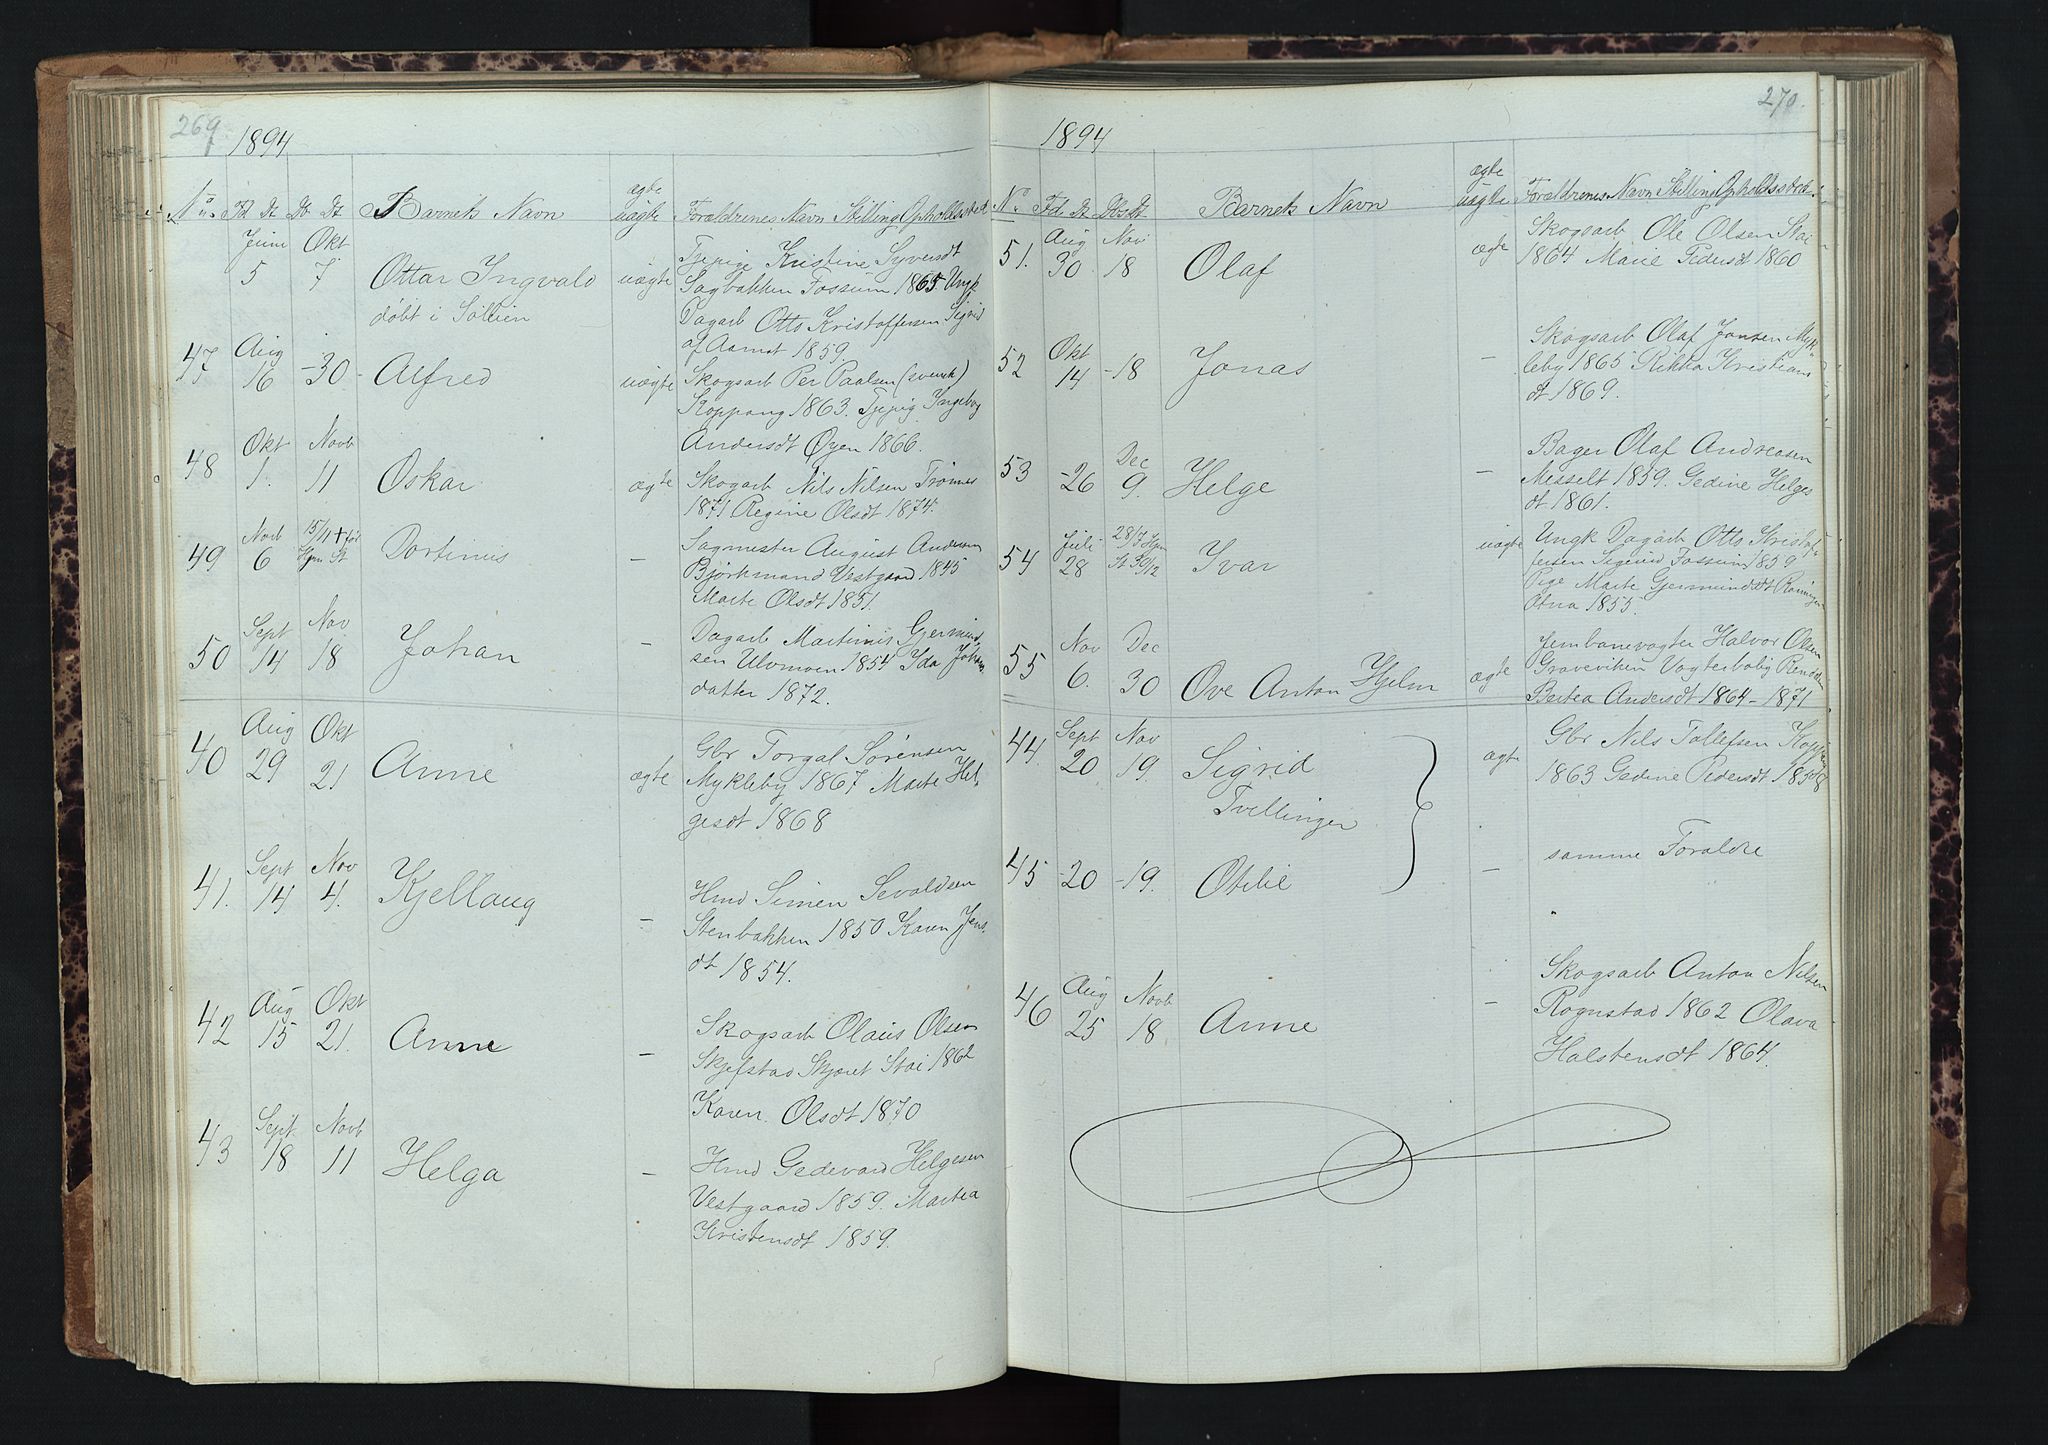 269
1894
No. Fd Dt Db Dt Barnets Navn ægte uægte Forældrenes Navn Stilling Opholdssted
Juni Okt
5 7 Ottar Ingvald uægte Tjpige Kristine Syversdt
døbt i Sollien Sagbakken Fossum 1865. Ungk
Dagarb Otto Kristoffersen Sigrid
af Aamot 1859.
47 Aug 16 - 30 - Alfred uægte Skogsarb Per Paalsen (svensk)
Koppang 1863. Tjpig Ingebog
Andersdt Øyen 1866.
48 Okt 1. Novb 11 Oskar ægte Skogarb Nils Nilsen Trønnes
1871 Regine Olsdt 1874.
49 Novb 6 15/11 + før Hjm St Dortinius - Sagmester August Andersen
Bjørkmand Vestgaard 1845
Marte Olsdt 1851.
50 Sept 14 Nov 18 Johan - Dagarb Martinus Gjermund-
sen Ulvmoen 1854 Ida Johans
datter 1872.
40 Aug 29 Okt 21 Anne ægte Gbr Torgal Sørensen
Mykleby 1867 Marte Hel-
gesdt 1868
41. Sept 14 Nov 4. Kjellaug - Hmd Simen Sevaldsen
Stenbakken 1850 Karen Jens-
dt 1854.
42 Aug 15 Okt 21. Anne - Skogsarb Olaus Olsen
Skjefstad Skjæret Stai 1862
Karen Olsdt 1870
43 Sept. 18 Novb 11 Helga - Hmd Gedevard Helgesen
Vestgaard 1859. Martea
Kristensdt 1859.
270.
1894
No. Fd. Dt Dbs Dt. Barnets Navn ægte uægte Forældrenes Navn Stilling Opholdssted
51. Aug 30 Nov 18 Olaf ægte Skogsarb Ole Olsen Stai
1864 Marie Pedersdt 1860
52 Okt 14 - 18 Jonas - Skogsarb Olaf Jonsen Myk-
leby 1865 Rikka Kristians
dt 1869.
53 - 26 Dec 9. Helge - Bager Olaf Andreasen
Messelt 1859. Gedine Helges
dt 1861.
54 Juli 28 28/7 Hjm St 30/12 Ivar uægte Ungk Dagarb Otto Kristof-
fersen Sigrid Fossum 1859
Pige Marte Gjermundsdt
Atna 1855.
55 Nov 6. Dec 30 Ove Anton Hjelm ægte Jernbanevogter Halvor Olsen
Graveviken Vogterbolig
Bertea Andersdt 1864 - 1871
44. Sept 20 Nov 19. Sigrid ægte Gbr Nils Tollefsen Koppang
1863 Gedine Pedersdt 1858
Tvillinger
45 - 20 - 19. Otilie - samme Forældre
46 Aug 25 Novb 18 Anne - Skogsarb Anton Nilsen
Rognstad 1862 Olava
Halstensdt 1864.